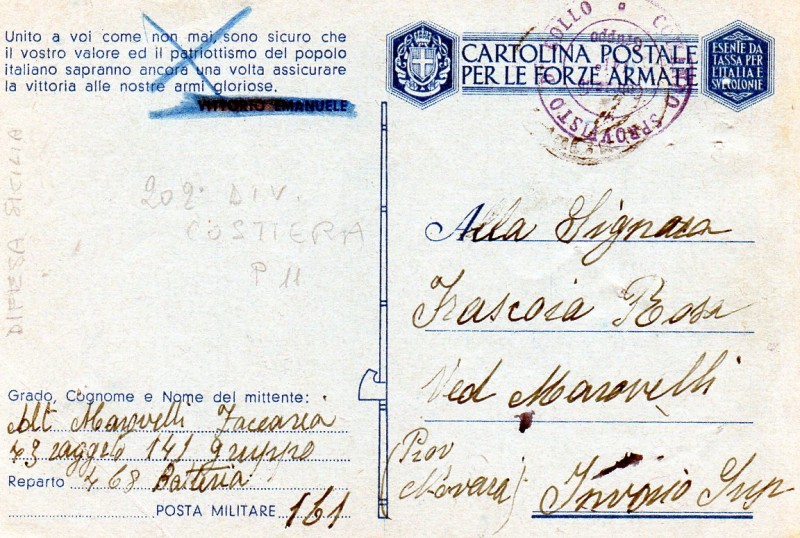 Unito a voi come non mai, sono sicuro che
il vostro valore ed il patriottismo del popolo
italiano sapranno ancora una volta assicurare
la vittoria alle nostre armi gloriose.
VITTORIO EMANUELE
DIFESA SICILIA
202ª DIV.
COSTIERA
P 11
Grado, Cognome e Nome del mittente:
Art Marovelli Zaccaria
43 raggrto 141 gruppo
Reparto 468 Batteria
POSTA MILITARE 161
CARTOLINA POSTALE
PER LE FORZE ARMATE
ESENTE DA
TASSA PER
L'ITALIA E
SUE COLONIE
SPROVVISTO
BOLLO
Gruppo
Alla Signora
Frascoia Rosa
Ved Marovelli
(Prov
Novara) Invorio Sup